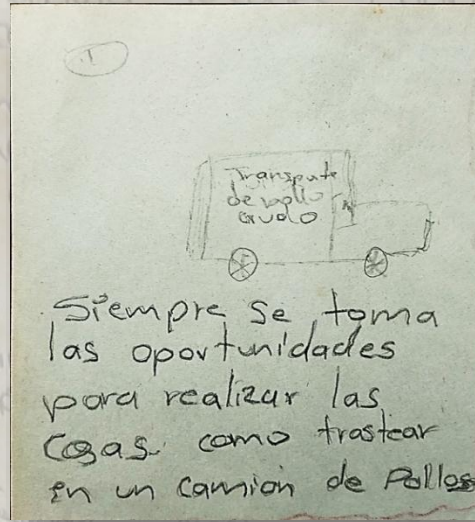 1
Transpute
de pollo
crudo
Siempre se toma
las oportunidades
para realizar las
cosas como trastear
en un camion de Pollos